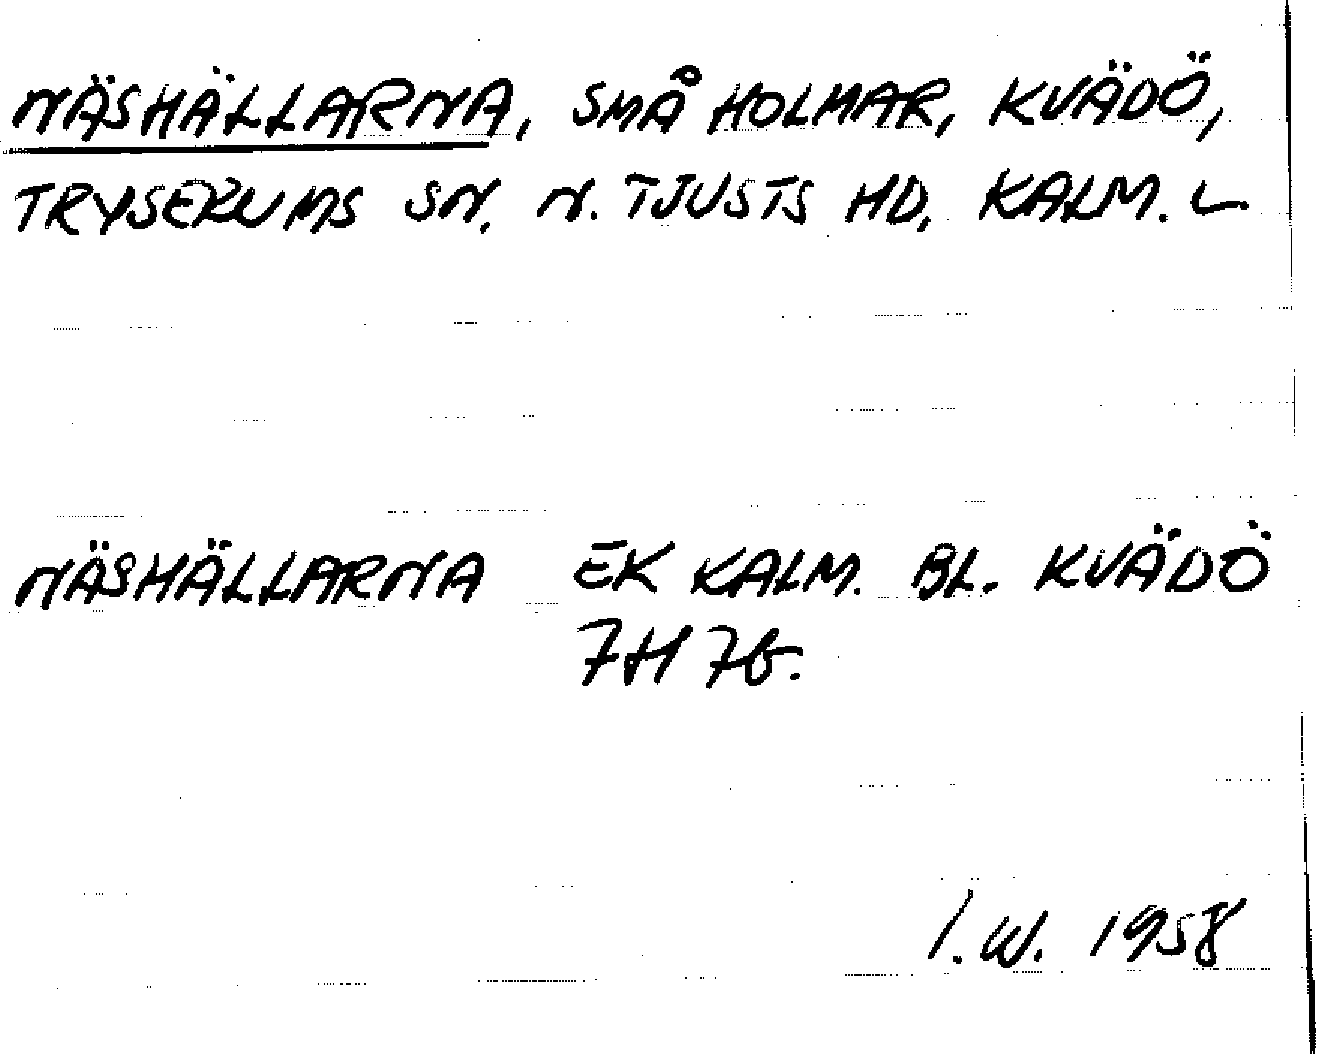 NÄSHÄLLARNA, SMÅ HOLMAR, KVÄDÖ,
TRYSERUMS SN. N. TJUSTS HD. KALM. L.
NÄSHÄLLARNA EK KALM. BL. KVÄDÖ
7H 7b.
I.W. 1958